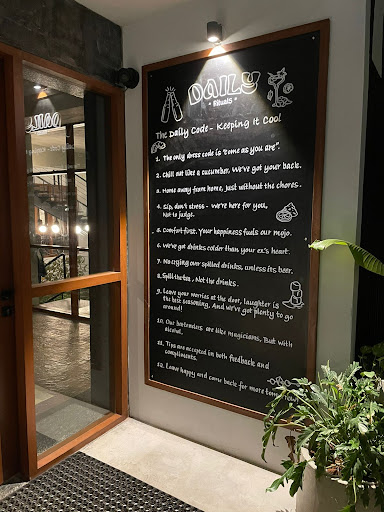 DAILY
• Rituals •
The Daily Code - Keeping It Cool
1. The only dress code is "come as you are".
2. Chill out like a cucumber, We've got your back.
3. Home away from home, just without the chores.
4. Sip, don't stress - we're here for you,
Not to judge.
5. Comfort first, Your happiness fuels our mojo.
6. We've got drinks colder than your ex's heart.
7. No crying over spilled drinks, unless its beer.
8. Spill the tea, Not the drinks.
9. Leave your worries at the door, laughter is
the best seasoning, And we've got plenty to go
around!
10. Our bartenders are like magicians, But with
alcohol.
11. Tips are accepted in both feedback and
compliments.
12. Leave happy and come back for more tomorrow